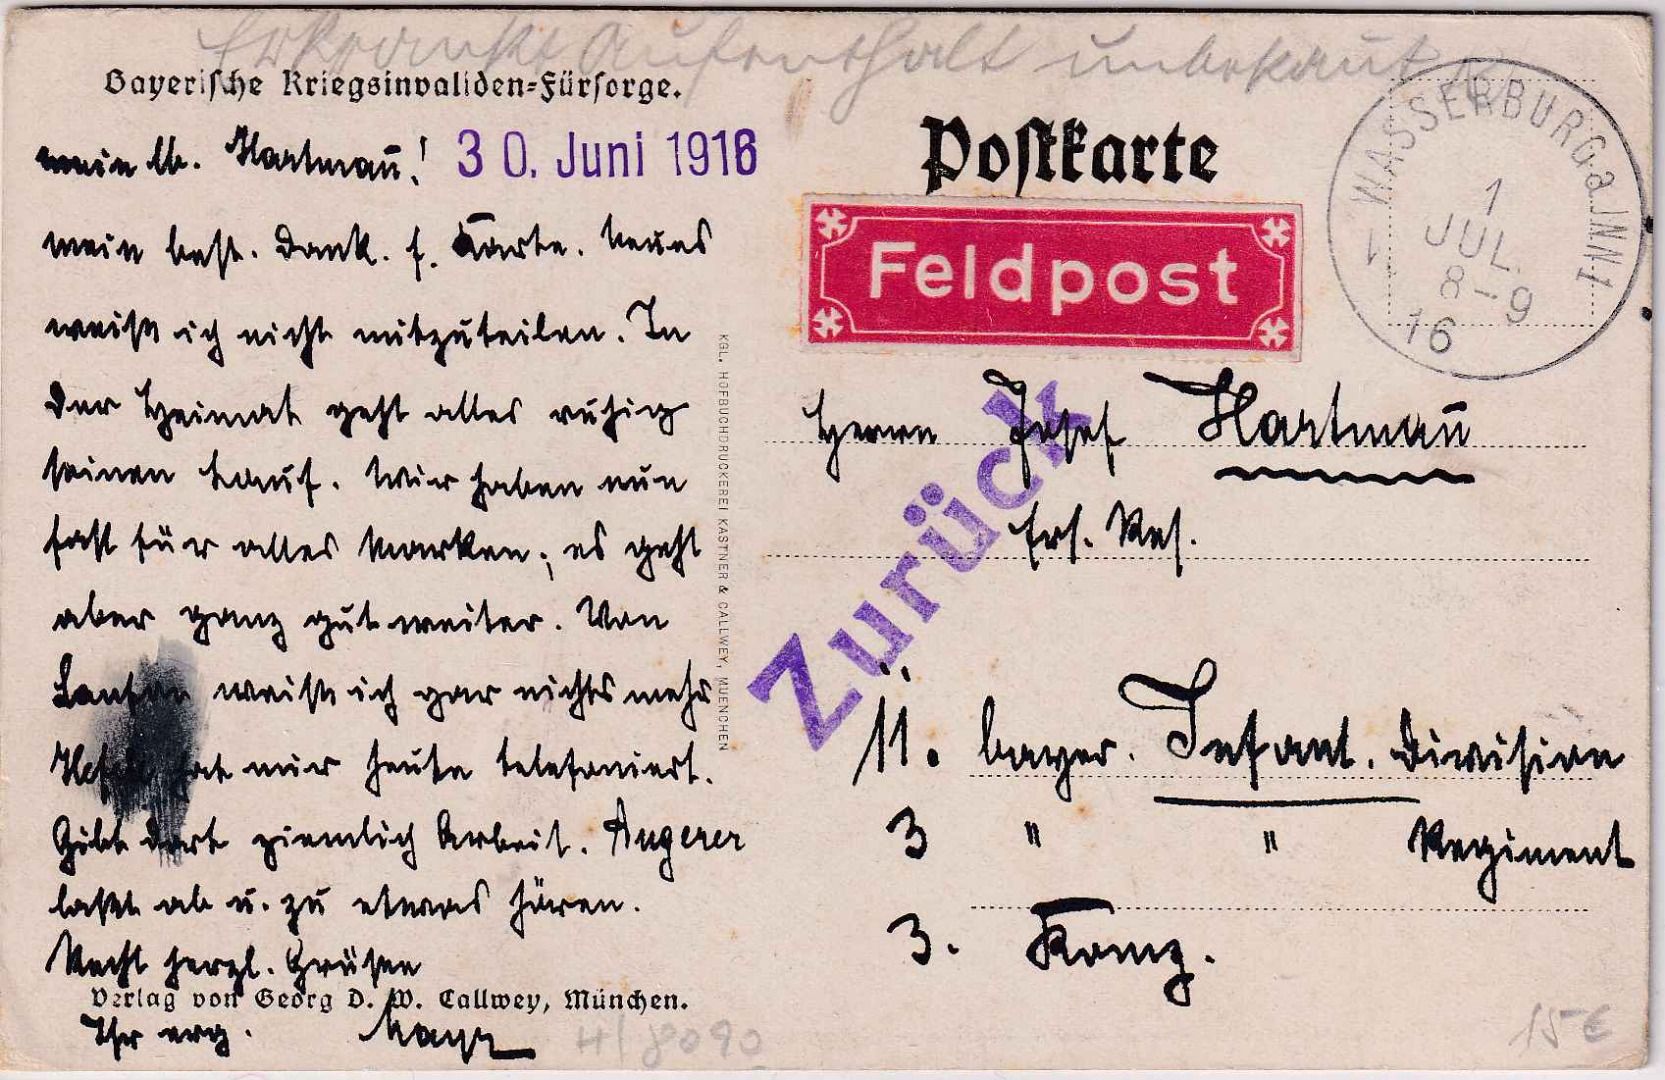 Erkrankt Aufenthalt unbekannt
Bayerische Kriegsinvaliden-Fürsorge.
mein lb. Hartmann! 30. Juni 1916
mein best. Dank. f. Karte. Neues
weiß ich nicht mitzuteilen. In
der Heimat geht alles ruhig
seinen Lauf. Wir haben nun
fast für alles Marken; es geht
aber ganz gut weiter. Von
weiß ich gar nichts mehr
hat mir heute telefoniert.
Gibt dort ziemlich Arbeit. Angerer
laßt ab u. zu etwas hören.
Recht herzl. Grüßen
Verlag von Georg D. W. Callwey, München.
Ihr erg. Mayr
H/8090
KGL. HOFBUCHDRUCKEREI KASTNER & CALLWEY, MUENCHEN
Postkarte
Feldpost
WASSERBURG a. INN 1
1
JUL.
8-9
16
Zurück
Herrn Josef Hartmann
Ers. Res.
11. bayer. Infant. Division
3 " " Regiment
3. Komp.
15 €